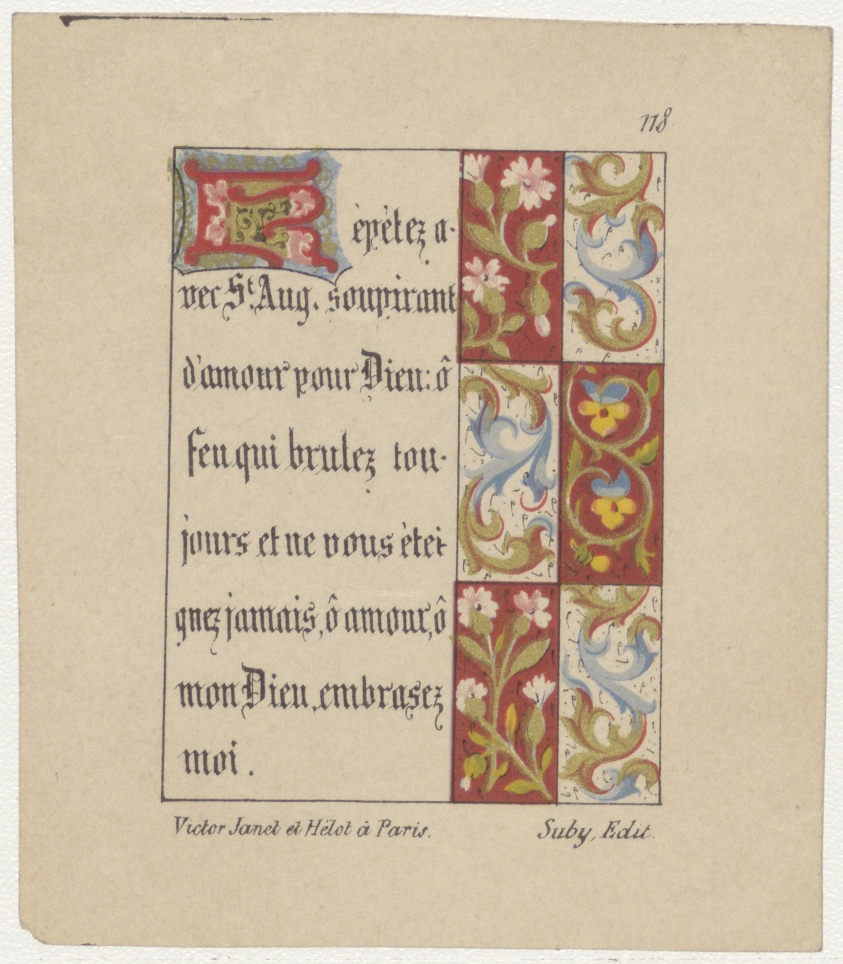 118
Répétez a-
vec St Aug. soupirant
d'amour pour Dieu: ô
feu qui brulez tou-
jours et ne vous étei-
gnez jamais, ô amour, ô
mon Dieu, embrasez
moi.
Victor Janet et Hélot à Paris.
Suby, Edit.